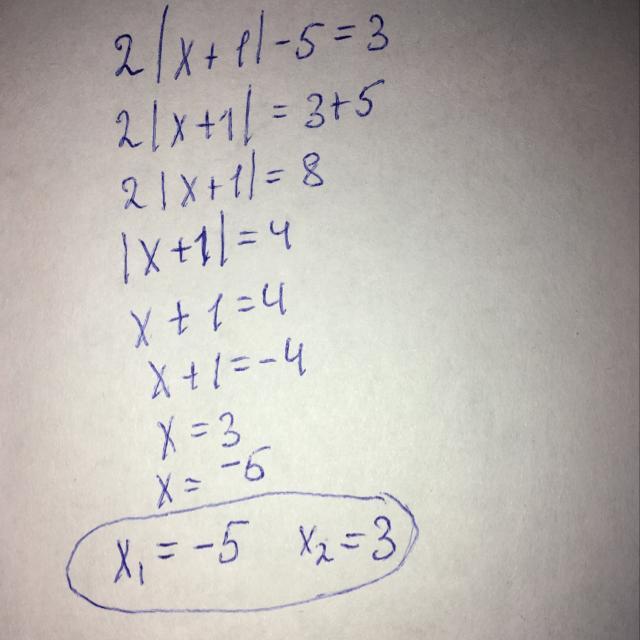 2|x+1|-5=3
2|x+1|=3+5
2|x+1|=8
|x+1|=4
x+1=4
x+1=-4
x=3
x=-5
x₁=-5 x₂=3